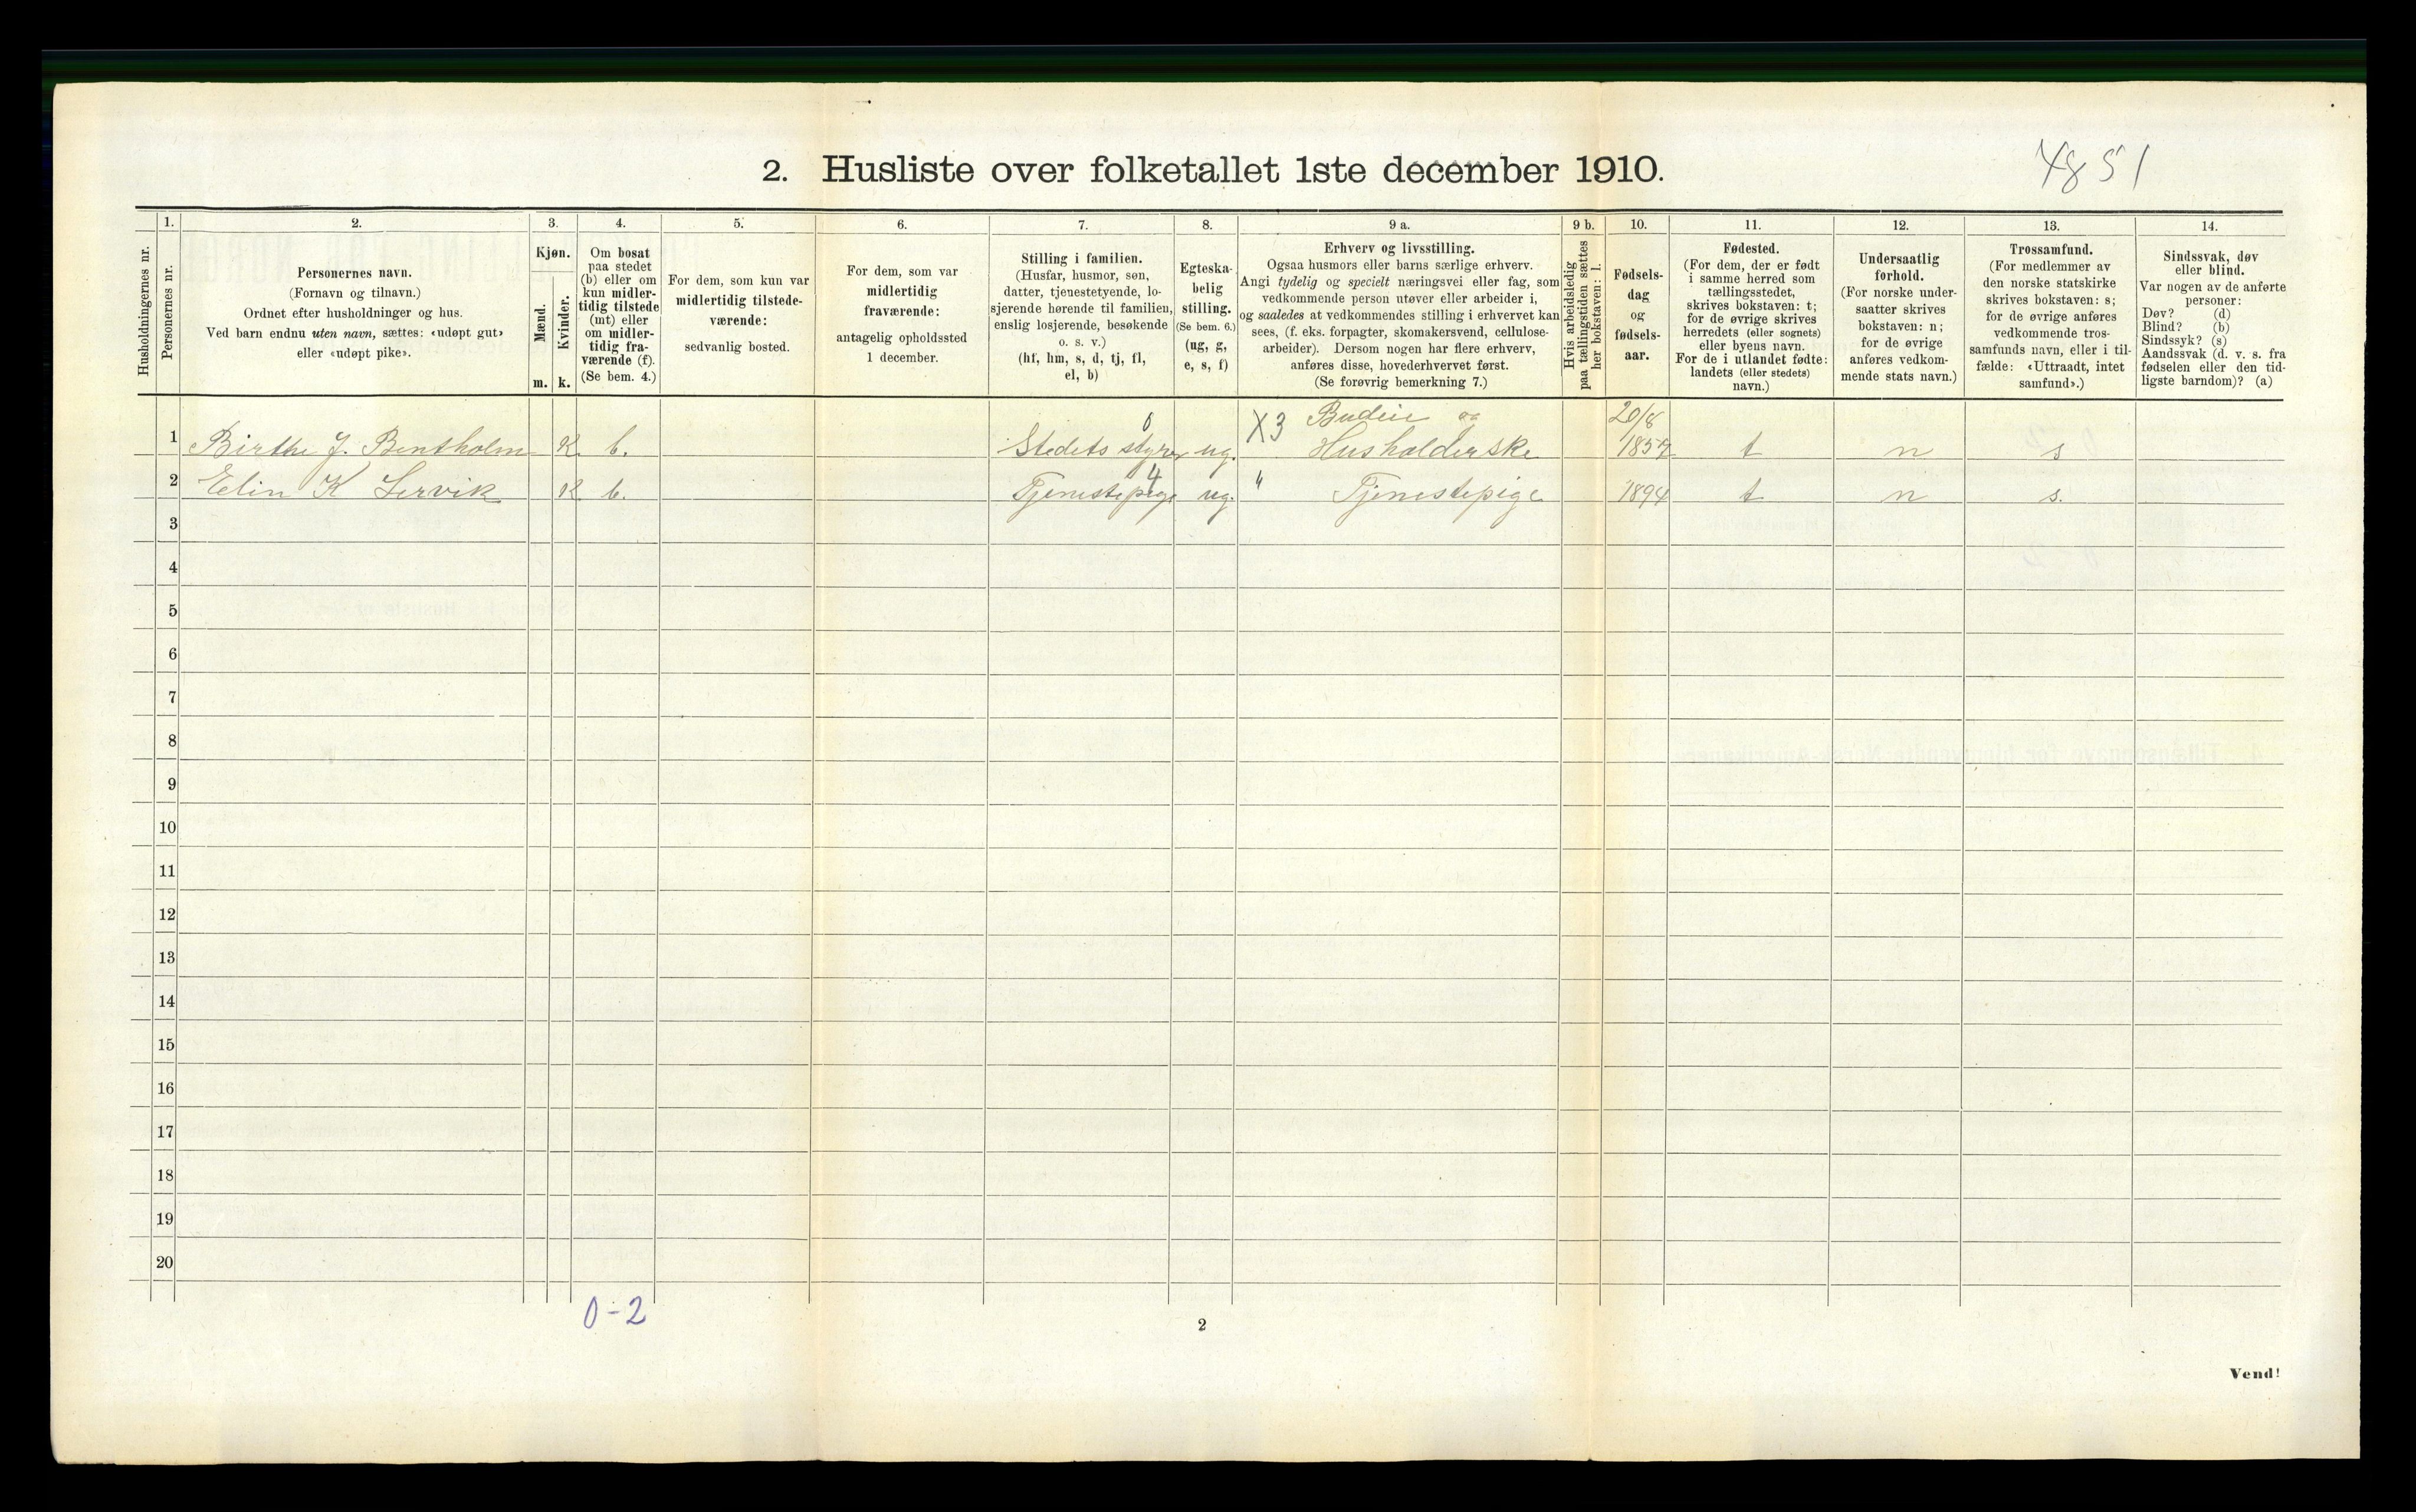 4851
2. Husliste over folketallet 1ste december 1910.
Husholdningernes nr.
1.
Personernes nr.
2.
Personernes navn.
(Fornavn og tilnavn.)
Ordnet efter husholdninger og hus.
Ved barn endnu uten navn, sættes: «udøpt gut»
eller «udøpt pike».
3.
Kjøn.
Mænd.
Kvinder.
m. k.
4.
Om bosat
paa stedet
(b) eller om
kun midler-
tidig tilstede
(mt) eller
om midler-
tidig fra-
værende (f).
(Se bem. 4.)
5.
For dem, som kun var
midlertidig tilstede-
værende:
sedvanlig bosted.
6.
For dem, som var
midlertidig
fraværende:
antagelig opholdssted
1 december.
7.
Stilling i familien.
(Husfar, husmor, søn,
datter, tjenestetyende, lo-
sjerende hørende til familien,
enslig losjerende, besøkende
o. s. v.)
(hf, hm, s, d, tj, fl,
el, b)
8.
Egteska-
belig
stilling.
(Se bem. 6.)
(ug, g,
e, s, f)
9 a.
Erhverv og livsstilling.
Ogsaa husmors eller barns særlige erhverv.
Angi tydelig og specielt næringsvei eller fag, som
vedkommende person utøver eller arbeider i,
og saaledes at vedkommendes stilling i erhvervet kan
sees, (f. eks. forpagter, skomakersvend, cellulose-
arbeider). Dersom nogen har flere erhverv,
anføres disse, hovederhvervet først.
(Se forøvrig bemerkning 7.)
9 b.
Hvis arbeidsledig
paa tællingstiden sættes
her bokstaven: l.
10.
Fødsels-
dag
og
fødsels-
aar.
11.
Fødested.
(For dem, der er født
i samme herred som
tællingsstedet,
skrives bokstaven: t;
for de øvrige skrives
herredets (eller sognets)
eller byens navn.
For de i utlandet fødte:
landets (eller stedets)
navn.)
12.
Undersaatlig
forhold.
(For norske under-
saatter skrives
bokstaven: n;
for de øvrige
anføres vedkom-
mende stats navn.)
13.
Trossamfund.
(For medlemmer av
den norske statskirke
skrives bokstaven: s;
for de øvrige anføres
vedkommende tros-
samfunds navn, eller i til-
fælde: «Uttraadt, intet
samfund».)
14.
Sindssvak, døv
eller blind.
Var nogen av de anførte
personer:
Døv? (d)
Blind? (b)
Sindssyk? (s)
Aandssvak (d. v. s. fra
fødselen eller den tid-
ligste barndom)? (a)
0 X3 Budeie og 20/8
1 Birthe J. Bentholm K. b. Stedets styrer ug. Husholderske 1857 t n s
2 Elin K Lervik K b. Tjenestepige 4 ug. " Tjenestepige 1894 t n s.
3
4
5
6
7
8
9
10
11
12
13
14
15
16
17
18
19
20
0-2
2
Vend!